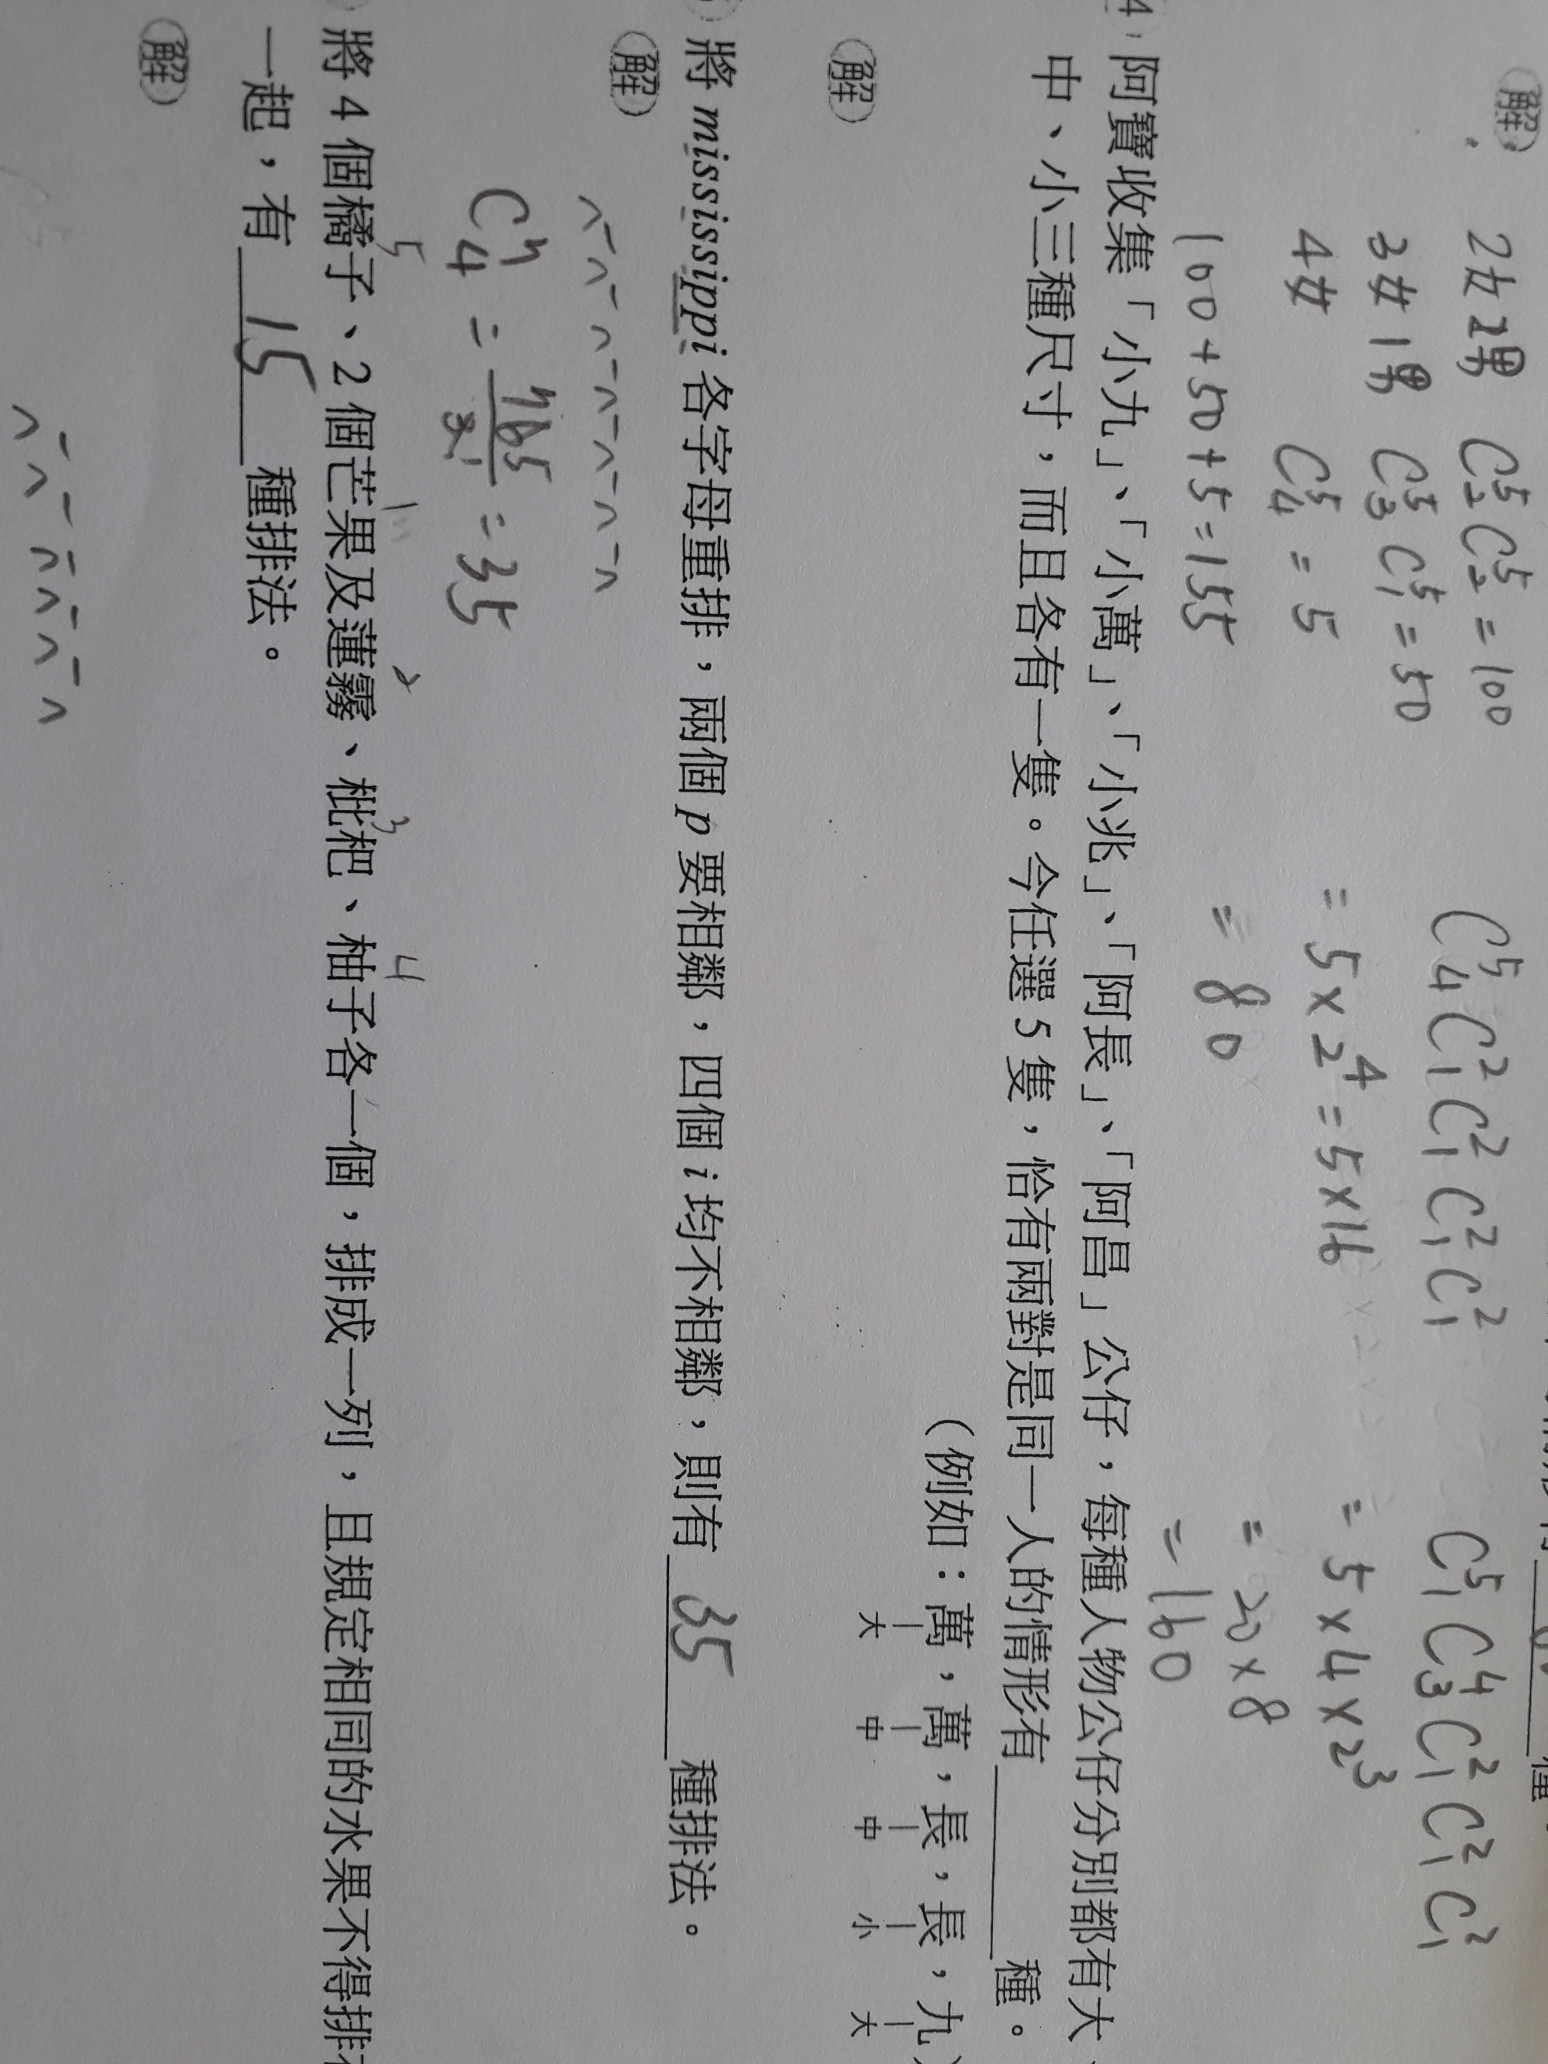 解
2女2男 C⁵₂C⁵₂=100
3女1男 C⁵₃C⁵₁=50
4女 C⁵₄=5
100+50+5=155
C⁵₄C²₁C²₁C²₁C²₁
=5×2⁴=5×16
=80
C⁵₁C⁴₃C²₁C²₁C²₁
=5×4×2³
=20×8
=160
4. 阿寶收集「小九」、「小萬」、「小兆」、「阿長」、「阿昌」公仔，每種人物公仔分別都有大、
中、小三種尺寸，而且各有一隻。今任選5隻，恰有兩對是同一人的情形有 種。
（例如：萬，萬，長，長，九）
大 中 中 小 大
解
將mississippi各字母重排，兩個p要相鄰，四個i均不相鄰，則有 35 種排法。
解
C⁷₄=765/3!=35
將4個橘子、2個芒果及蓮霧、枇杷、柚子各一個，排成一列，且規定相同的水果不得排在
5 1 2 3 4
一起，有 15 種排法。
解